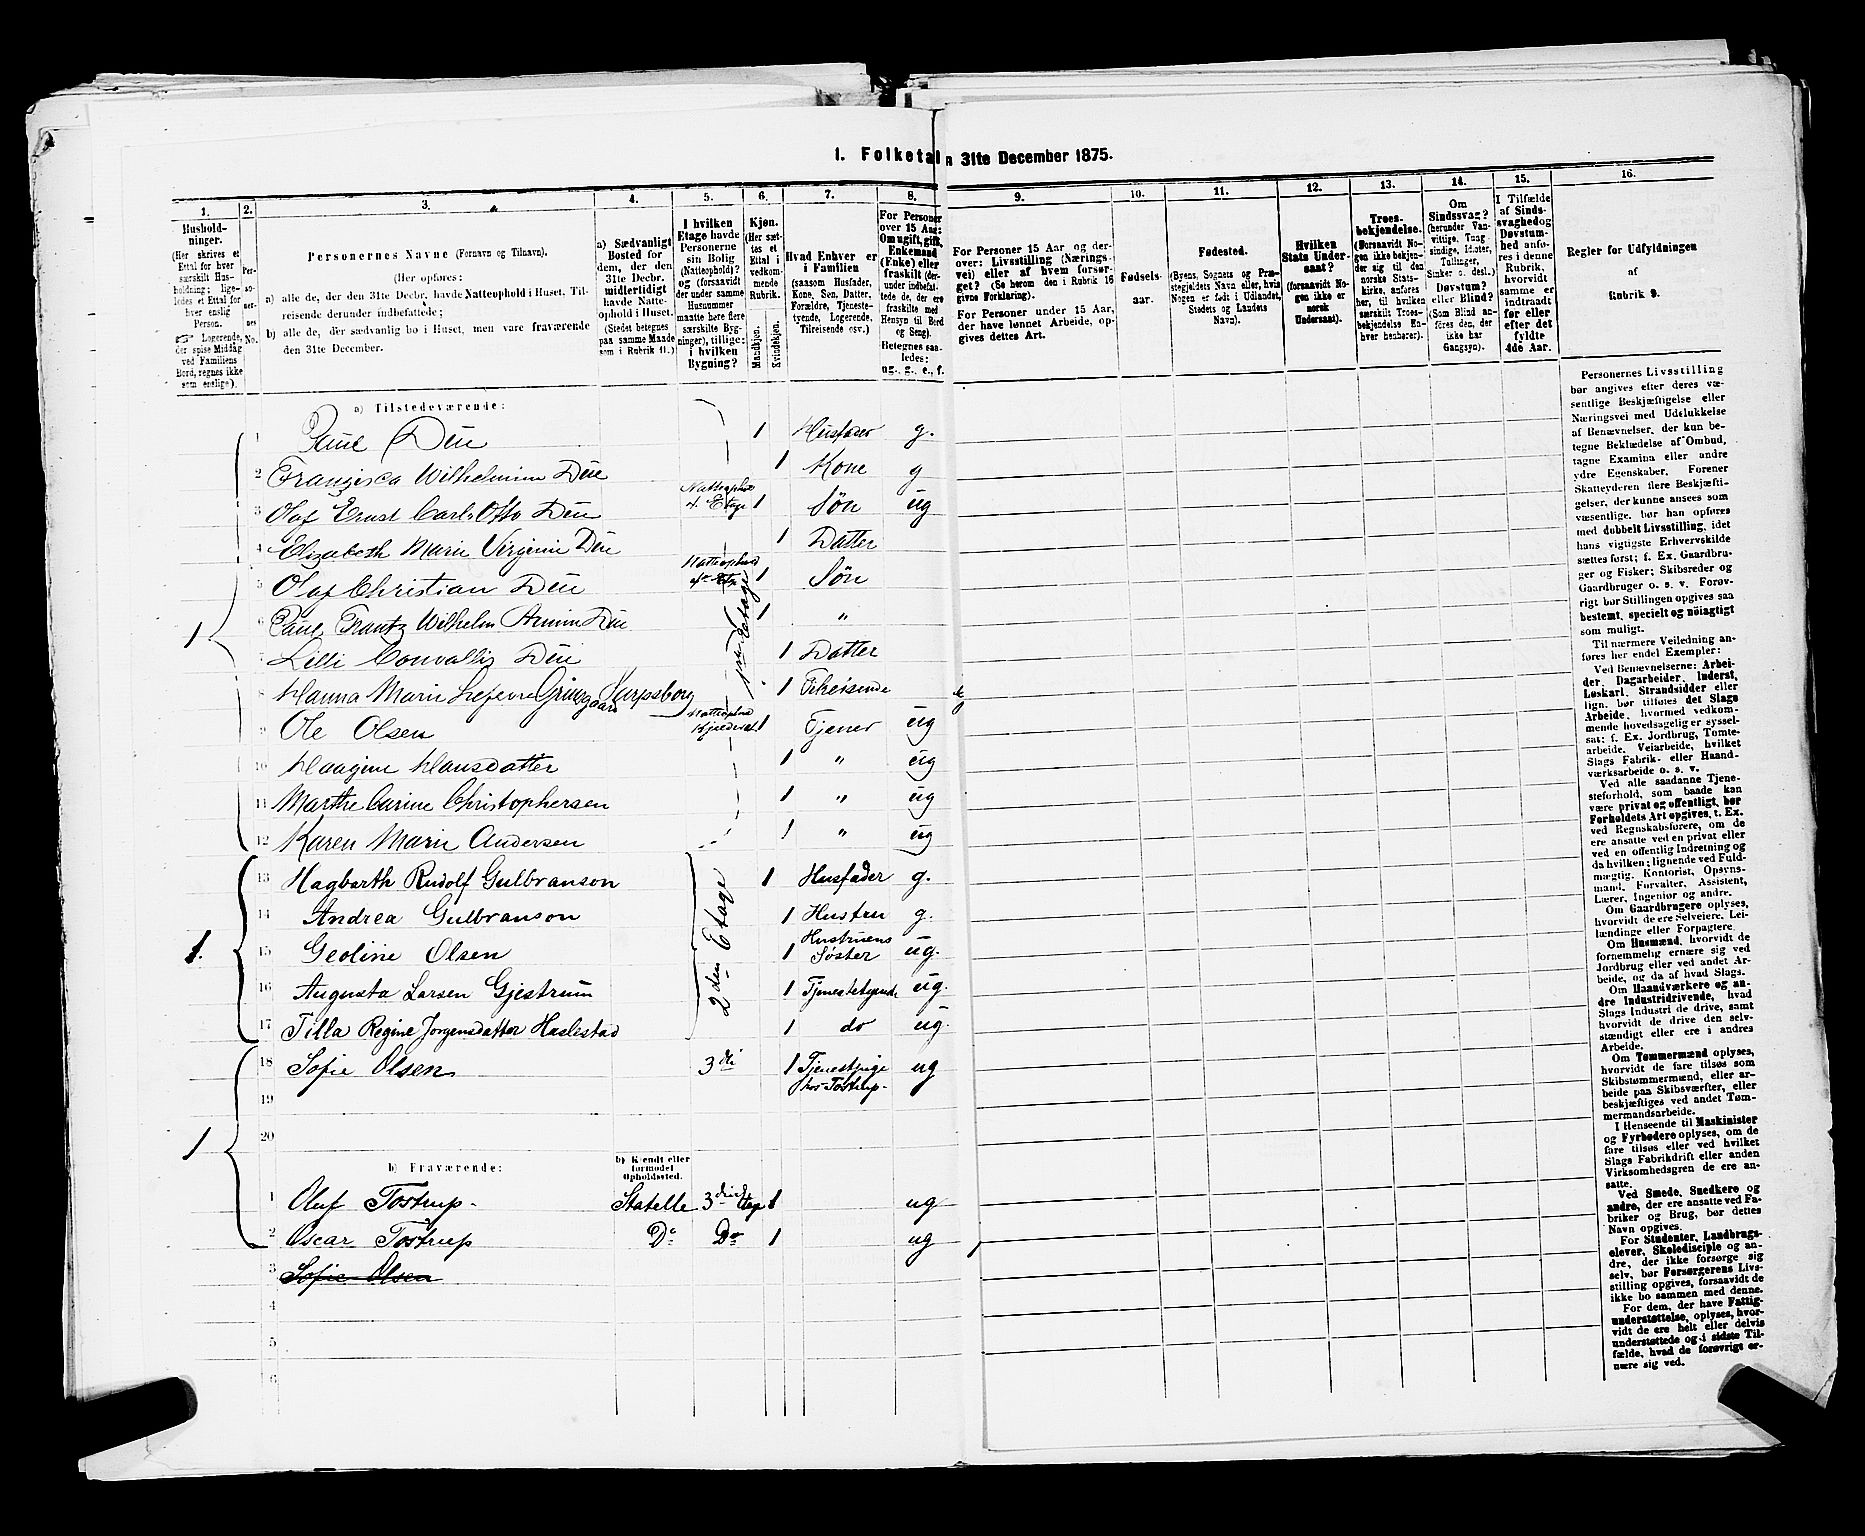 1. Folketal 31te December 1875.
1. 2. 3. 4. 5. 6. 7. 8. 9. 10. 11. 12. 13. 14. 15. 16.
Husholdninger.
(Her skrives et
Ettal for hver
særskilt Husholdning;
ligeledes et Ettal for
hver enslig
Person.
Logerende,
der spise Middag
ved Familiens
Bord, regnes ikke
som enslige).
Personernes No.
Personernes Navne (Fornavn og Tilnavn).
(Her opføres:
a) alle de, der den 31te Decbr. havde Natteophold i Huset, Tilreisende
derunder indbefattede;
b) alle de, der sædvanlig bo i Huset, men vare fraværende
den 31te December.
a) Sædvanligt
Bosted for
dem, der den
31te Decbr.
midlertidigt
havde Natteophold
i Huset.
(Stedet betegnes
paa samme Maade
som i Rubrik 11.)
I hvilken
Etage havde
Personerne
sin Bolig
(Natteophold)?
og (forsaavidt
der under samme
Husnummer
maatte høre flere
særskilte Bygninger),
tillige:
i hvilken
Bygning?
Kjøn.
(Her sættes
et
Ettal i
vedkommende
Rubrik.
Mandkjøn.
Kvindekjøn.
Hvad Enhver er
i Familien
(saasom Husfader,
Kone, Søn, Datter,
Forældre, Tjenestetyende,
Logerende,
Tilreisende osv.)
For Personer
over 15 Aar:
Om ugift, gift,
Enkemand
(Enke) eller
fraskilt (derunder
indbefattede
de, der ere
fraskilte med
Hensyn til Bord
og Seng).
Betegnes saaledes:
ug., g., e., f.
For Personer 15 Aar og derover:
Livsstilling (Næringsvei)
eller af hvem forsørget?
(Se herom den i Rubrik 16
givne Forklaring).
For Personer under 15 Aar,
der have lønnet Arbeide, opgives
dettes Art.
Fødselsaar.
Fødested.
(Byens, Sognets og Præstegjeldets
Navn eller, hvis
Nogen er født i Udlandet,
Stedets og Landets
Navn).
Hvilken
Stats Undersaat?
(forsaavidt Nogen
ikke er
norsk
Undersaat).
Troesbekjendelse.
(Forsaavidt Nogen
ikke bekjender
sig til den
norske Statskirke,
anføres
her, til hvilken
særskilt Troesbekjendelse
Enhver
henhører).
Om
Sindssvag?
(herunder Vanvittige,
Tungsindige,
Idioter,
Tullinger,
Sinker o. desl.)
Døvstum?
eller Blind?
(Som Blind anføres
den, der
ikke har
Gangsyn).
I Tilfælde
af Sindssvaghed
og
Døvstumhed
anføres
i denne
Rubrik,
hvorvidt
samme er
indtraadt
før eller
efter det
fyldte
4de Aar.
Regler for Udfyldningen
af
Rubrik 9.
a) Tilstedeværende:
1 Paul Due 1 Husfader g.
2 Franzisca Wilhelmine Due 1 Kone g
3 Olaf Ernst Carl Otto Due 4. Etage 1 Søn ug
4 Elizabeth Marie Virginie Due 1 Datter
5 Olaf Christian Due Natteophold 1 Søn
6 Paul Frantz Wilhelm Armin Due 1 "
1
7 Lilli Convallis Due 1 Datter
8 Hanna Marie Lefevre Sarpsborg 1
9 Ole Olsen Natteophold 1 Tjener ug
10 Haagine Hansdatter 1 " ug
11 Marthe Carine Christophersen 1 " ug
12 Karen Marie Andersen 1 " ug
13 Hagbarth Rudolf Gulbranson 2den Etage 1 Husfader g.
14 Andrea Gulbranson 1 Hustru g.
1. 15 Geoline Olsen 1 Hustruens Søster ug.
16 Augusta Larsen Gjestrum 1 Tjenestetyende ug.
17 Tilla Regine Jorgensdatter Haslestad 1 do ug.
18 Sofie Olsen 3die 1 Tjenestpige ug
19 hos Tostrup-
20
1
b) Fraværende:
b) Kjendt eller
formodet
Opholdssted.
1 Oluf Tostrup- Statelle 1 ug
2 Oscar Tostrup Do Do 1 ug
3 Sofie Olsen
4
5
6
Personernes Livsstilling
bør angives efter deres væsentlige
Beskjæftigelse eller
Næringsvei med Udelukkelse
af Benævnelser, der kun betegne
Beklædelse af Ombud,
tagne Examina eller andre
ydre Egenskaber. Forener
Skatteyderen flere Beskjæftigelser,
der kunne ansees som
væsentlige, bør han opføres
med dobbelt Livsstilling, idet
hans vigtigste Erhvervskilde
sættes først; f. Ex. Gaardbruger
og Fisker; Skibsreder og
Gaardbruger o. s. v. Forøvrigt
bør Stillingen opgives saa
bestemt, specielt og nøiagtigt
som muligt.
Til nærmere Veiledning anføres
her endel Exempler:
Ved Benævnelserne: Arbeider,
Dagarbeider, Inderst,
Løskarl, Strandsidder eller
lign. bør tilføies det Slags
Arbeide, hvormed vedkommende
hovedsagelig er sysselsat;
f. Ex. Jordbrug, Tomtearbeide,
Veiarbeide, hvilket
Slags Fabrik- eller Haandværksarbeide
o. s. v.
Ved alle saadanne Tjenesteforhold,
som baade kan
være privat og offentligt, bør
Forholdets Art opgives, t. Ex.
ved Regnskabsførere, om de
ere ansatte ved en privat eller
ved en offentlig Indretning og
da hvilken; lignende ved Fuldmægtig,
Kontorist, Opsynsmand,
Forvalter, Assistent,
Lærer, Ingeniør og andre.
Om Gaardbrugere oplyses,
hvorvidt de ere Selveiere, Leilændinge
eller Forpagtere.
Om Husmænd, hvorvidt de
fornemmelig ernære sig ved
Jordbrug eller ved andet Arbeide,
og da af hvad Slags.
Om Haandværkere og andre
Industridrivende, hvad
Slags Industri de drive, samt
hvorvidt de drive den selvstændigt
eller ere i andres
Arbeide.
Om Tømmermænd oplyses,
hvorvidt de fare tilsøs som
Skibstømmermænd, eller arbeide
paa Skibsværfter, eller
beskjæftiges ved andet Tømmermandsarbeide.
I Henseende til Maskinister
og Fyrbødere oplyses, om de
fare tilsøs eller ved hvilket
Slags Fabrikdrift eller anden
Virksomhedsgren de ere ansatte.
Ved Smede, Snedkere og
andre, der ere ansatte ved Fabriker
og Brug, bør dettes
Navn opgives.
For Studenter, Landbrugselever,
Skoledisciple og andre,
der ikke forsørge sig
selv, bør Forsørgerens Livsstilling
opgives, forsaavidt de
ikke bo sammen med denne.
For dem, der have Fattigunderstøttelse,
oplyses, hvorvidt
de ere helt eller delvis
understøttede og i sidste Tilfælde,
hvad de forøvrigt ernære
sig ved.